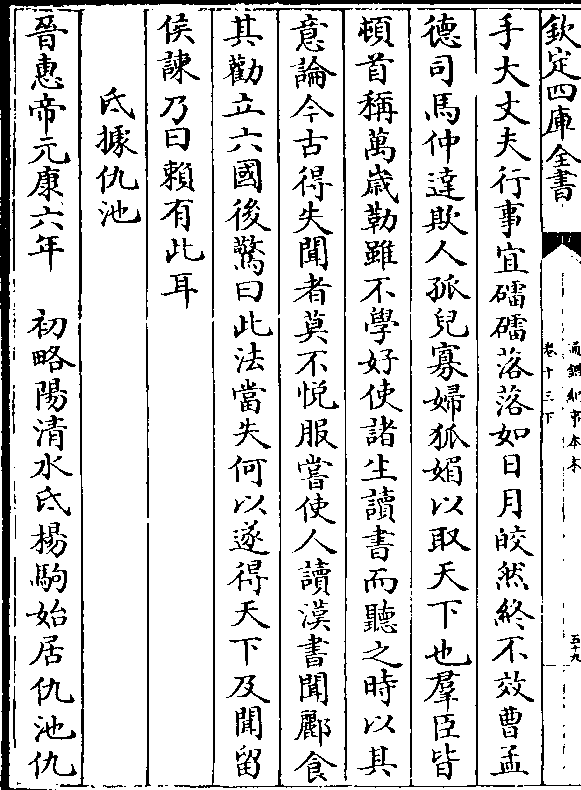 欽定四庫全書
通鑑紀事本末
卷十三下
五十九
手大丈夫行事宜礌礌落落如日月皎然終不效曹孟
德司馬仲達欺人孤兒寡婦狐媚以取天下也羣臣皆
頓首稱萬歲勒雖不學好使諸生讀書而聽之時以其
意論今古得失聞者莫不悅服嘗使人讀漢書聞酈食
其勸立六國後驚曰此法當失何以遂得天下及聞留
侯諫乃曰賴有此耳
氐據仇池
晉惠帝元康六年 初略陽清水氐楊駒始居仇池仇